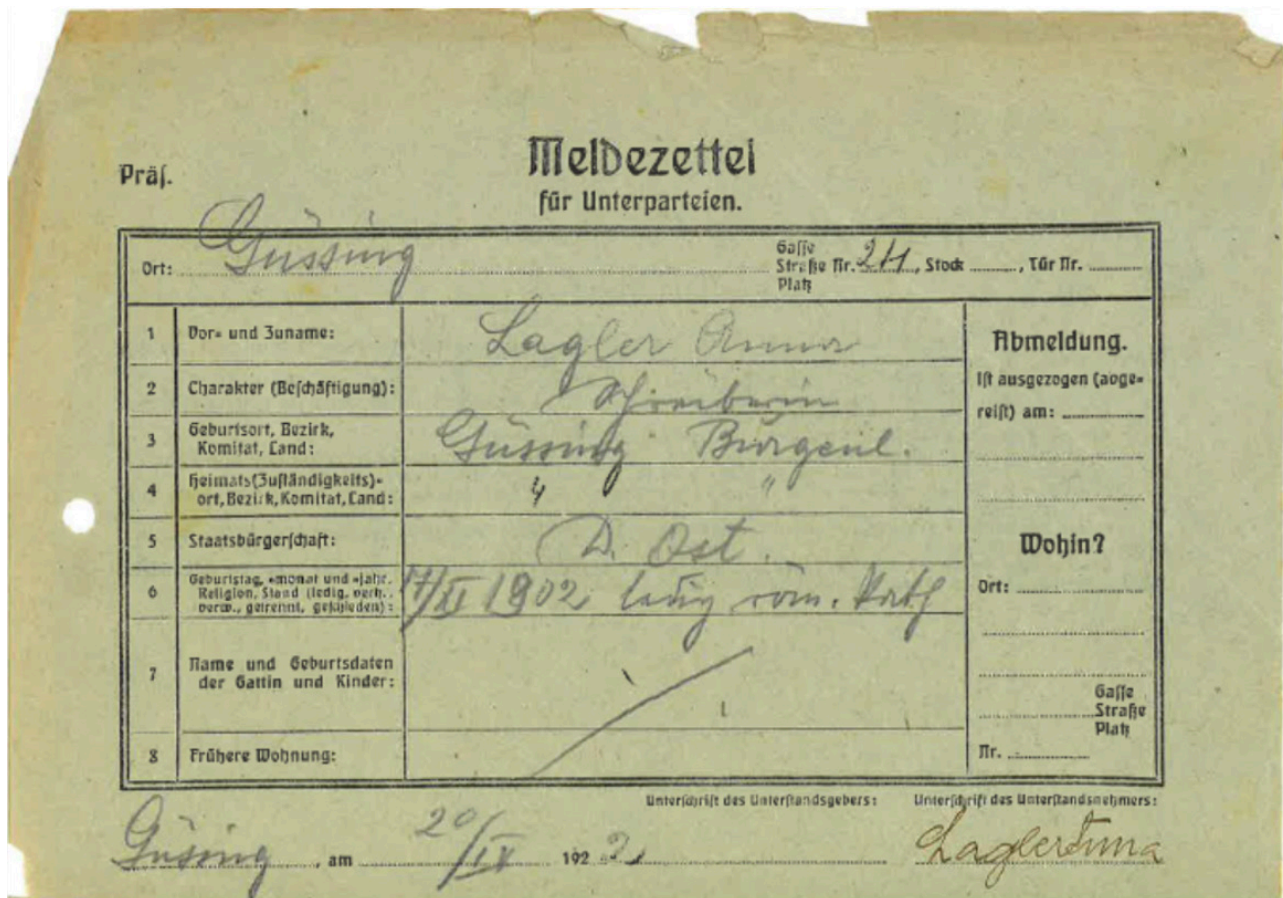 Präs.
Meldezettel
für Unterparteien.
Ort: Güssing
Gasse
Straße Nr. 211, Stock ........, Tür Nr. ........
Platz
1 Vor- und Zuname: Lagler Anna
2 Charakter (Beschäftigung): Schreiberin
3 Geburtsort, Bezirk,
Komitat, Land: Güssing Burgenl.
4 Heimats(Zuständigkeits)-
ort, Bezirk, Komitat, Land: " "
5 Staatsbürgerschaft: D. Öst.
6 Geburtstag, -monat und -jahr,
Religion, Stand (ledig, verh.,
verw., getrennt, geschieden): 17/XI 1902 ledig röm. Kath
7 Name und Geburtsdaten
der Gattin und Kinder:
8 Frühere Wohnung:
Abmeldung.
Ist ausgezogen (abge-
reist) am:
Wohin?
Ort:
Gasse
Straße
Platz
Nr.
Unterschrift des Unterstandsgebers:
Unterschrift des Unterstandsnehmers:
Güssing, am 20/IX 1922
Lagler Anna